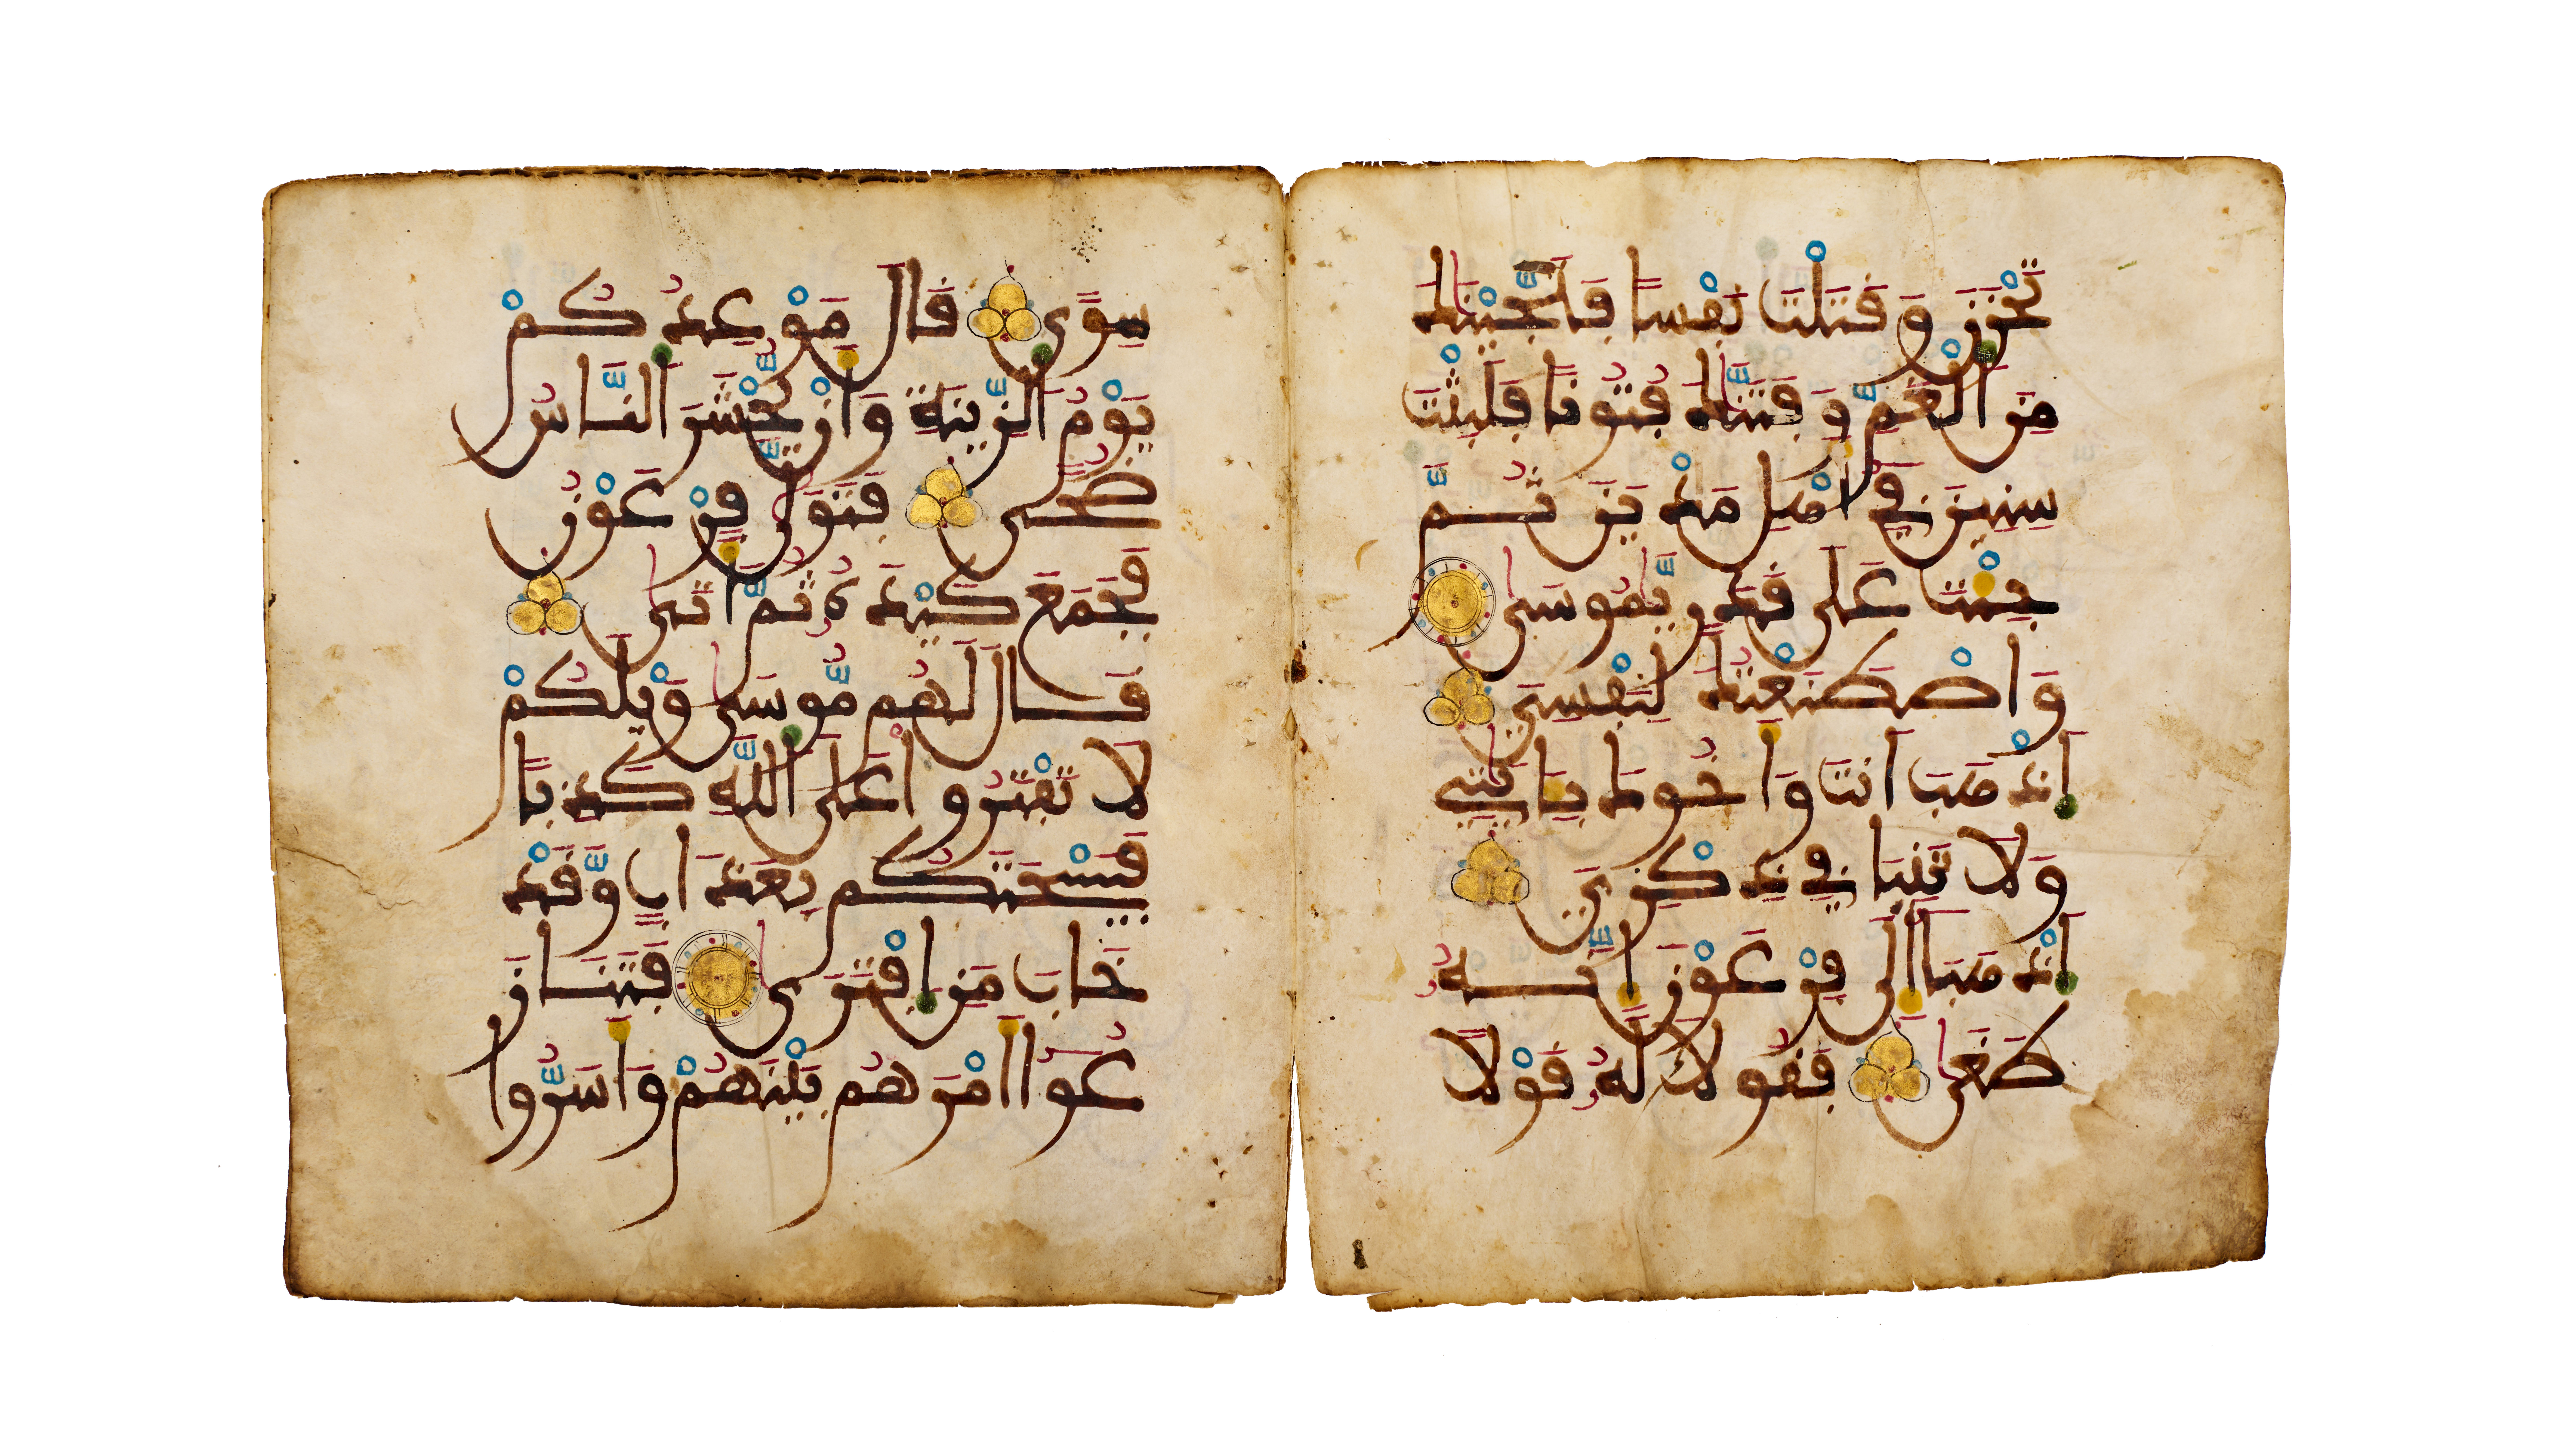 تَحْزَنَ وَقَتَلْتَ نَفْسًا فَنَجَّيْنَٰكَ
مِنَ الْغَمِّ وَفَتَنَّٰكَ فُتُونًا فَلَبِثْتَ
سِنِينَ فِي أَهْلِ مَدْيَنَ ثُمَّ
جِئْتَ عَلَىٰ قَدَرٍ يَّٰمُوسَىٰ
وَاصْطَنَعْتُكَ لِنَفْسِيَ
اَذْهَبَ اَنتَ وَأَخُوكَ بِـَٔايَٰتِي
وَلَا تَنِيَا فِي ذِكْرِيَ
اَذْهَبَا إِلَىٰ فِرْعَوْنَ إِنَّهُ
طَغَىٰ فَقُولَا لَهُ قَوْلًا
سِوًى قَالَ مَوْعِدُكُمْ
يَوْمُ الزِّينَةِ وَأَنْ يُّحْشَرَ النَّاسُ
ضُحًى فَتَوَلَّىٰ فِرْعَوْنُ
فَجَمَعَ كَيْدَهُ ثُمَّ أَتَىٰ
قَالَ لَهُم مُّوسَىٰ وَيْلَكُمْ
لَا تَفْتَرُوا عَلَى اللَّهِ كَذِبًا
فَيَسْحَتَكُم بِعَذَابٍ وَّقَدْ
خَابَ مَنِ افْتَرَىٰ فَتَنَازَ
عُوا أَمْرَهُم بَيْنَهُمْ وَأَسَرُّوا